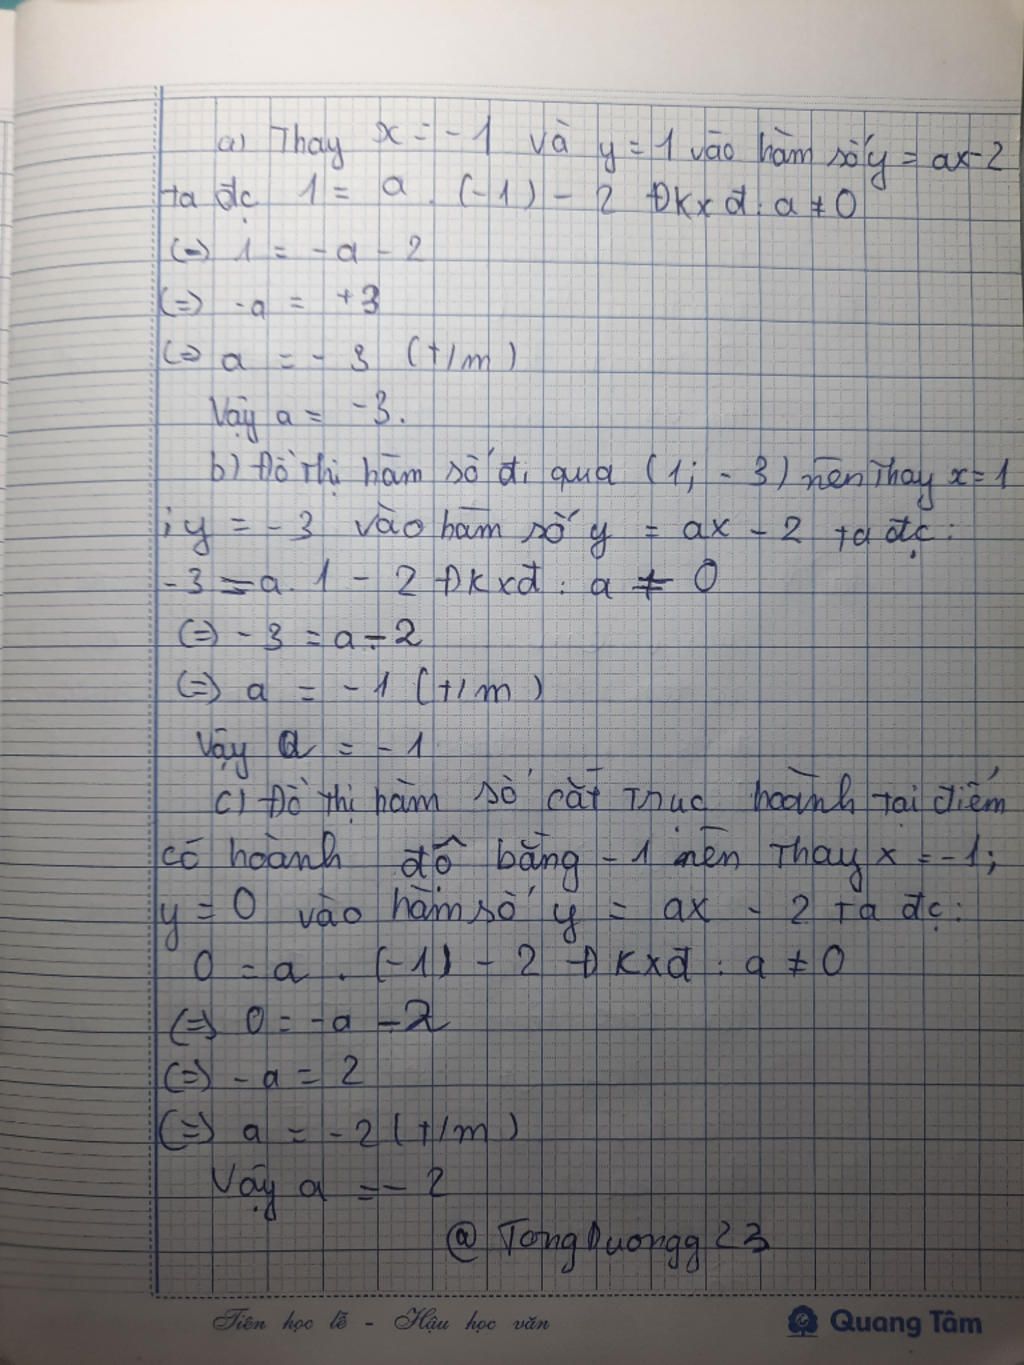 a) Thay x = -1 và y = 1 vào hàm số y = ax-2
ta đc 1 = a . (-1) - 2 ĐKxđ : a ≠ 0
(=) 1 = -a - 2
(=) -a = +3
(=) a = - 3 (t/m)
Vậy a = -3.
b) Đồ thị hàm số đi qua (1; -3) nên Thay x=1
; y = -3 vào hàm số y = ax - 2 ta đc:
-3 = a. 1 - 2 ĐKxđ : a ≠ 0
(=) -3 = a - 2
(=) a = -1 (t/m)
Vậy a = -1
c) Đồ thị hàm số cắt trục hoành tại điểm
có hoành độ bằng -1 nên Thay x = -1;
y = 0 vào hàm số y = ax - 2 ta đc:
0 = a . (-1) - 2 ĐKxđ : a ≠ 0
(=) 0 = -a - 2
(=) -a = 2
(=) a = -2 (t/m)
Vậy a = - 2
@ TongDuongg23
Tiên học lễ - Hậu học văn
Quang Tâm